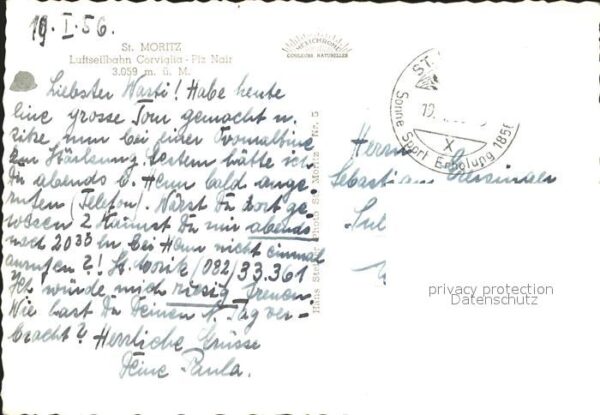 19.I.56.
St. MORITZ
Luftseilbahn Corviglia - Piz Nair
3.059 m. ü. M.
MEXICHROME
COULEURS NATURELLES
Liebster Wasti! Habe heute
eine grosse Tour gemacht u.
sitze nun bei einer Ovomaltine
zur Stärkung. Gestern hätte ich
Du abends b. Henn bald ange-
rufen (Telefon). Wärst Du dort ge-
wesen? Kannst Du mir abends
nach 20 33 bei Henn nicht einmal
anrufen?! St. Moritz (082) 33.361
Ich würde mich riesig freuen.
Wie hast Du Deinen N. Tag ver-
bracht? Herzliche Grüsse
Deine Paula.
Hans Steiner Photo St. Moritz Nr. 5
ST.
19.
X
Sonne Sport Erholung 1856
Herrn
Sebastian
privacy protection
Datenschutz